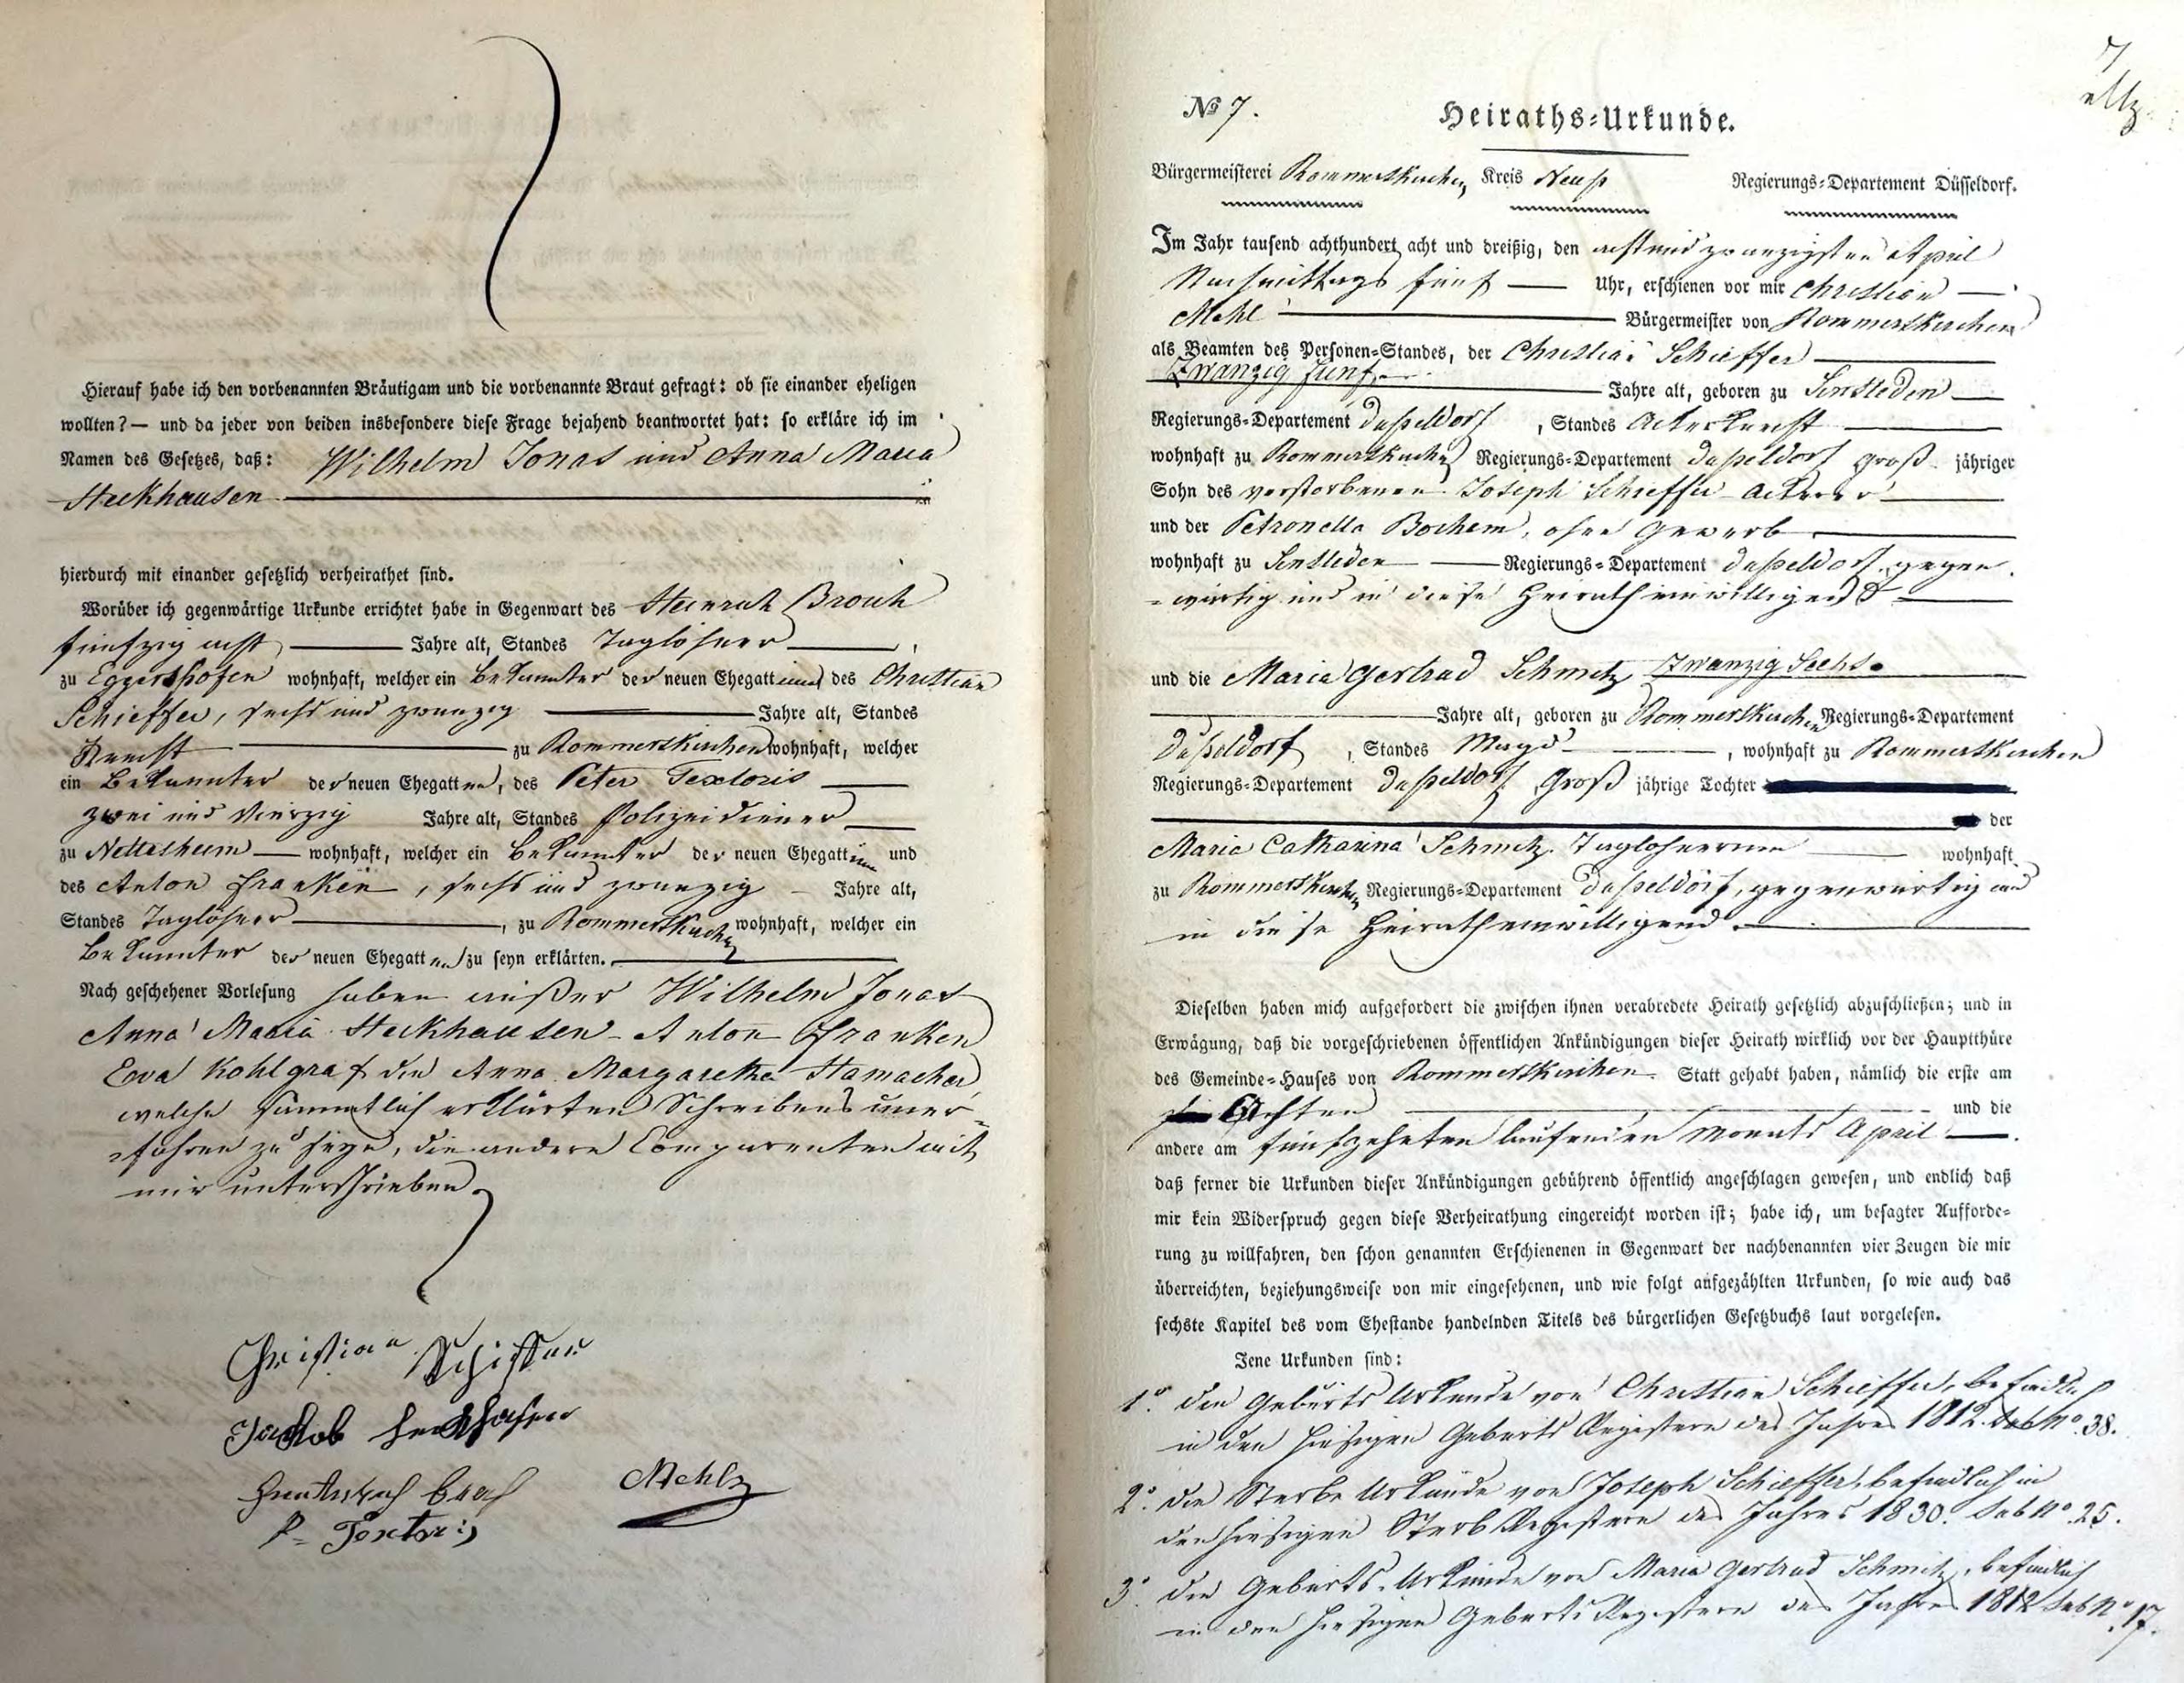 Hierauf habe ich den vorbenannten Bräutigam und die vorbenannte Braut gefragt: ob sie einander eheligen
wollten? — und da jeder von beiden insbesondere diese Frage bejahend beantwortet hat: so erkläre ich im
Namen des Gesetzes, daß: Wilhelm Jonas und Anna Maria
Steckhausen
hierdurch mit einander gesetzlich verheirathet sind.
Worüber ich gegenwärtige Urkunde errichtet habe in Gegenwart des Heinrich Broich
fünfzig acht Jahre alt, Standes Taglöhner
zu Eggershofen wohnhaft, welcher ein Bekannter der neuen Ehegatten des Christian
Schieffer, sechs und zwanzig Jahre alt, Standes
Knecht zu Rommerskirchen wohnhaft, welcher
ein Bekannter der neuen Ehegatten, des Peter Textoris
zwei und vierzig Jahre alt, Standes Polizeidiener
zu Nettesheim wohnhaft, welcher ein Bekannter der neuen Ehegatten und
des Anton Franken, sechs und zwanzig Jahre alt,
Standes Taglöhner, zu Rommerskirchen wohnhaft, welcher ein
Bekannter der neuen Ehegatten zu seyn erklärten.
Nach geschehener Vorlesung haben außer Wilhelm Jonas
Anna Maria Steckhausen Anton Franken
Eva Kohlgraf die Anna Margaretha Hamacher
welche sämmtlich erklärten Schreibens uner=
=fahren zu seyn, die andere Comparenten mit
mir unterschrieben.
Christian Schiffer
Jackob
P. Textoris
Mehl
7
No 7. Heiraths=Urkunde.
Bürgermeisterei Rommerskirchen Kreis Neuß Regierungs=Departement Düsseldorf.
Im Jahr tausend achthundert acht und dreißig, den acht und zwanzigsten April
Nachmittags fünf Uhr, erschienen vor mir Christian
Mehl Bürgermeister von Rommerskirchen
als Beamten des Personen=Standes, der Christian Schieffer
Zwanzig fünf
Jahre alt, geboren zu Sinsteden
Regierungs=Departement Düsseldorf, Standes Ackerknecht
wohnhaft zu Rommerskirchen Regierungs=Departement Düsseldorf groß jähriger
Sohn des verstorbenen Joseph Schieffer Ackerer
und der Petronella Bochem, ohne Gewerb
wohnhaft zu Sinsteden Regierungs=Departement Düsseldorf, gegen
=wärtig und in diese Heirath einwilligend
und die Maria Gertrud Schmitz Zwanzig Sechs
Jahre alt, geboren zu Rommerskirchen Regierungs=Departement
Düsseldorf, Standes Magd, wohnhaft zu Rommerskirchen
Regierungs=Departement Düsseldorf, Groß jährige Tochter
der
Maria Catharina Schmitz Taglohnerinn wohnhaft
zu Rommerskirchen Regierungs=Departement Düsseldorf, gegenwärtig und
in diese Heirath einwilligend.
Dieselben haben mich aufgefordert die zwischen ihnen verabredete Heirath gesetzlich abzuschließen; und in
Erwägung, daß die vorgeschriebenen öffentlichen Ankündigungen dieser Heirath wirklich vor der Hauptthüre
des Gemeinde=Hauses von Rommerskirchen Statt gehabt haben, nämlich die erste am
Achten und die
andere am fünfzehnten laufenden Monats April
daß ferner die Urkunden dieser Ankündigungen gebührend öffentlich angeschlagen gewesen, und endlich daß
mir kein Widerspruch gegen diese Verheirathung eingereicht worden ist; habe ich, um besagter Aufforde=
rung zu willfahren, den schon genannten Erschienenen in Gegenwart der nachbenannten vier Zeugen die mir
überreichten, beziehungsweise von mir eingesehenen, und wie folgt aufgezählten Urkunden, so wie auch das
sechste Kapitel des vom Ehestande handelnden Titels des bürgerlichen Gesetzbuchs laut vorgelesen.
Jene Urkunden sind:
1o. die Geburts Urkunde von Christian Schieffer, befindlich
in den hiesigen Geburts Registern des Jahres 1812 sub No. 38.
2o. die Sterbe Urkunde von Joseph Schieffer, befindlich in
den hiesigen Sterb Registern des Jahres 1830. sub No. 25.
3o. die Geburts Urkunde von Maria Gertrud Schmitz, befindlich
in den hiesigen Geburts Registern des Jahres 1812 sub No. 17.